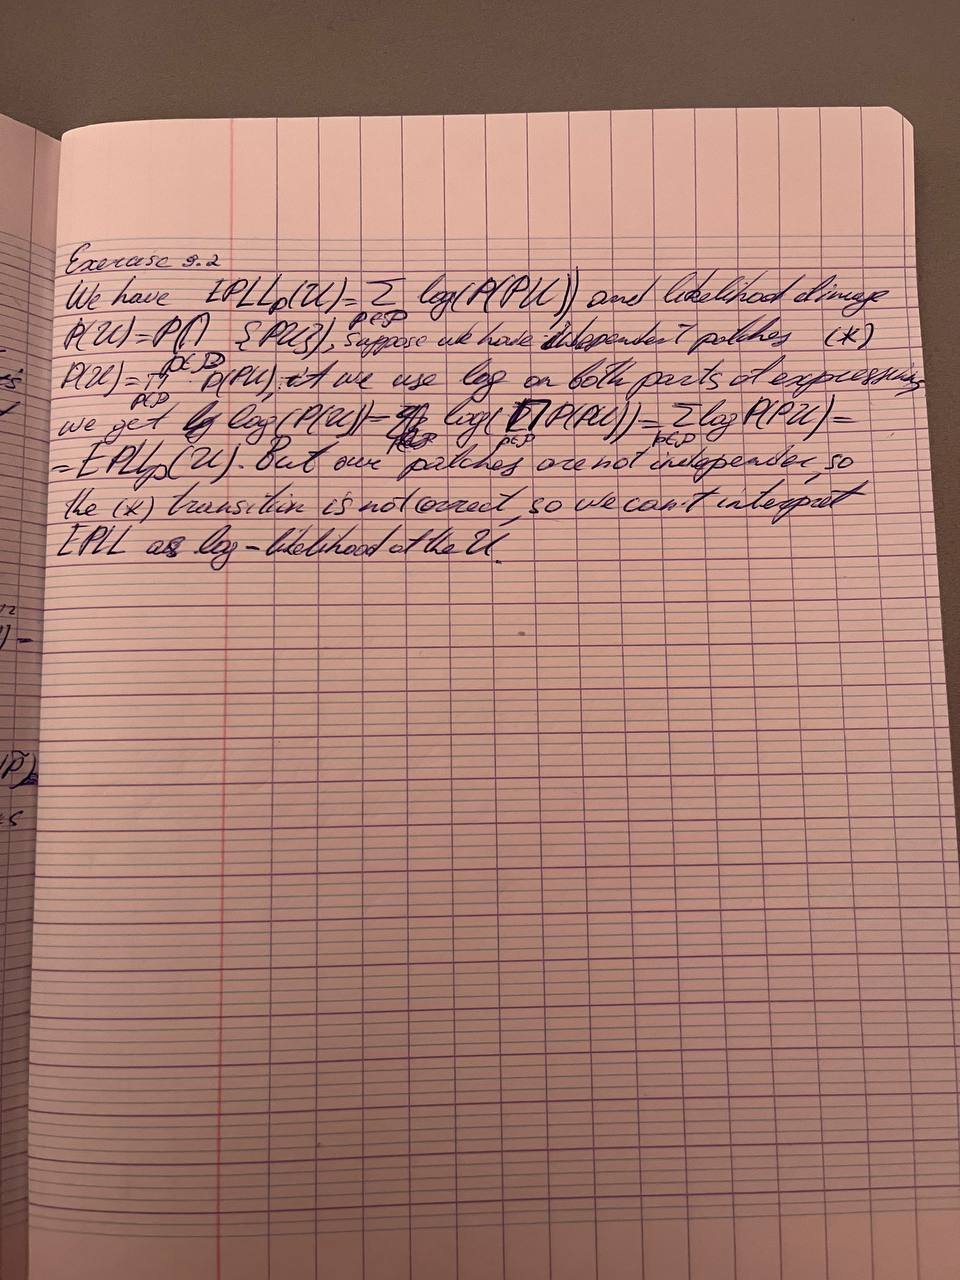 Exercise 9.2
We have EPLL_p(U) = Σ_{P∈𝒫} log(P(PU)) and likelihod dimage
P(U) = P(∩_{P∈𝒫} {PU}), suppose we have independent patches (*)
P(U) = Π_{P∈𝒫} P(PU), if we use log on both parts of expressing
we get log(P(U)) = log(Π_{P∈𝒫} P(PU)) = Σ_{P∈𝒫} log P(PU) =
= EPLL_p(U). But our patches are not independer, so
the (*) transition is not correct, so we can't interpret
EPLL as log-likelihood of the U.